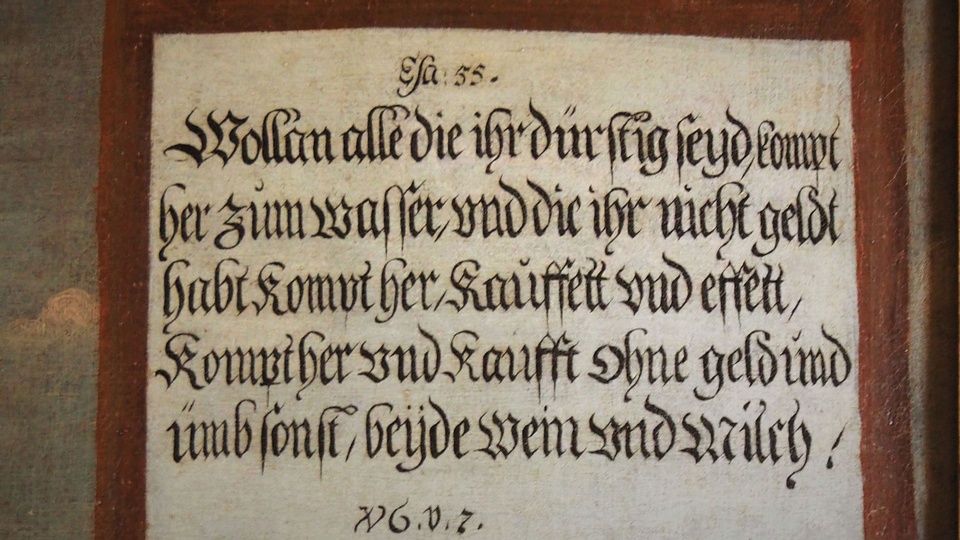 Esa: 55.
Wollan alle die ihr dürstig seyd, kompt
her zum wasser, vnd die ihr nicht geldt
habt kompt her, Kauffett vnd essett,
Kompt her vnd Kaufft ohne geld und
ümbsonst, beÿde wein vnd Milch!